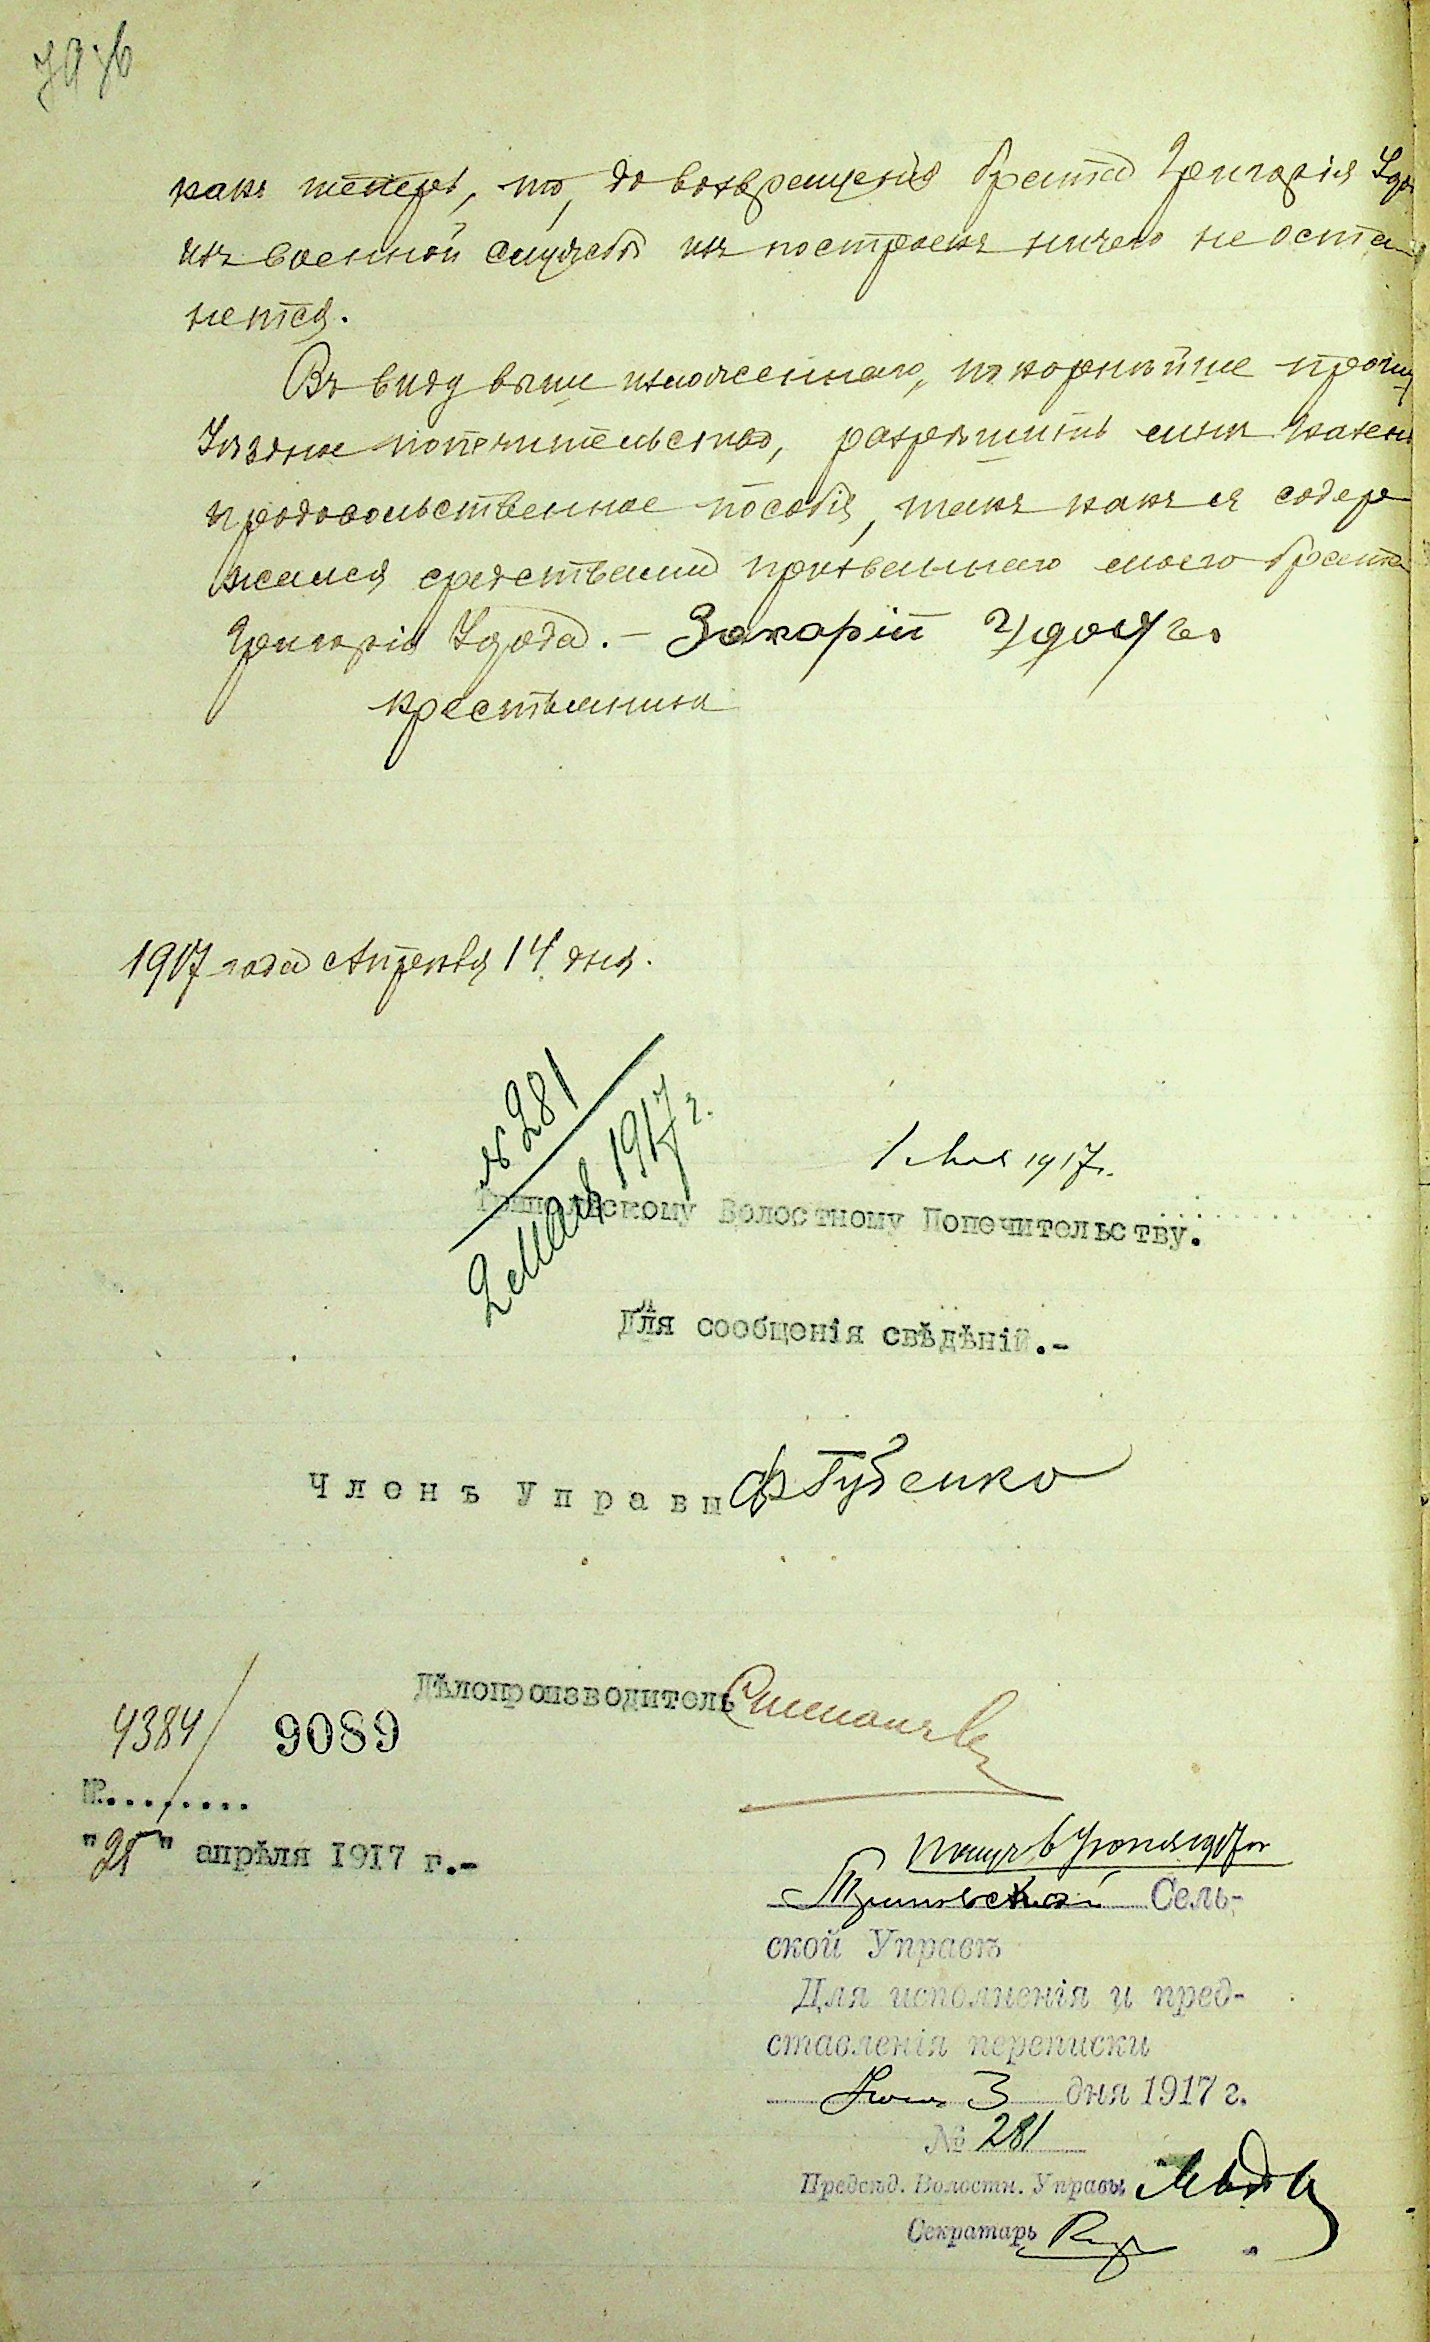 какъ теперь, то, до возвращенія брата Григорія Удо
изъ военной службы изъ построекъ ничего не оста
нется.
Въ виду выше изложеннаго, покорнѣйше прошу
Уѣздное попечительство, разрѣшить мнѣ казен
продовольственное пособіе, такъ какъ я содер
жался средствами призваннаго моего брата
Григорія Удода. — Захарій Удодъ
крестьянина
1917 года Апрѣля 14 дня.
№ 281
2 Мая 1917 г.
1 Мая 1917 г.
Трипольскому Волостному Попечительству.
Для сообщенія свѣдѣній.-
Членъ Управы Ф Губенко
Дѣлопроизводитель
4384/ 9089
№........
"25" апрѣля 1917 г.-
1917 г
Трипольской Сель-
ской Управѣ
Для исполненія и пред-
ставленія переписки
3 дня 1917 г.
№ 281
Предсѣд. Волостн. Управы
Секратарь